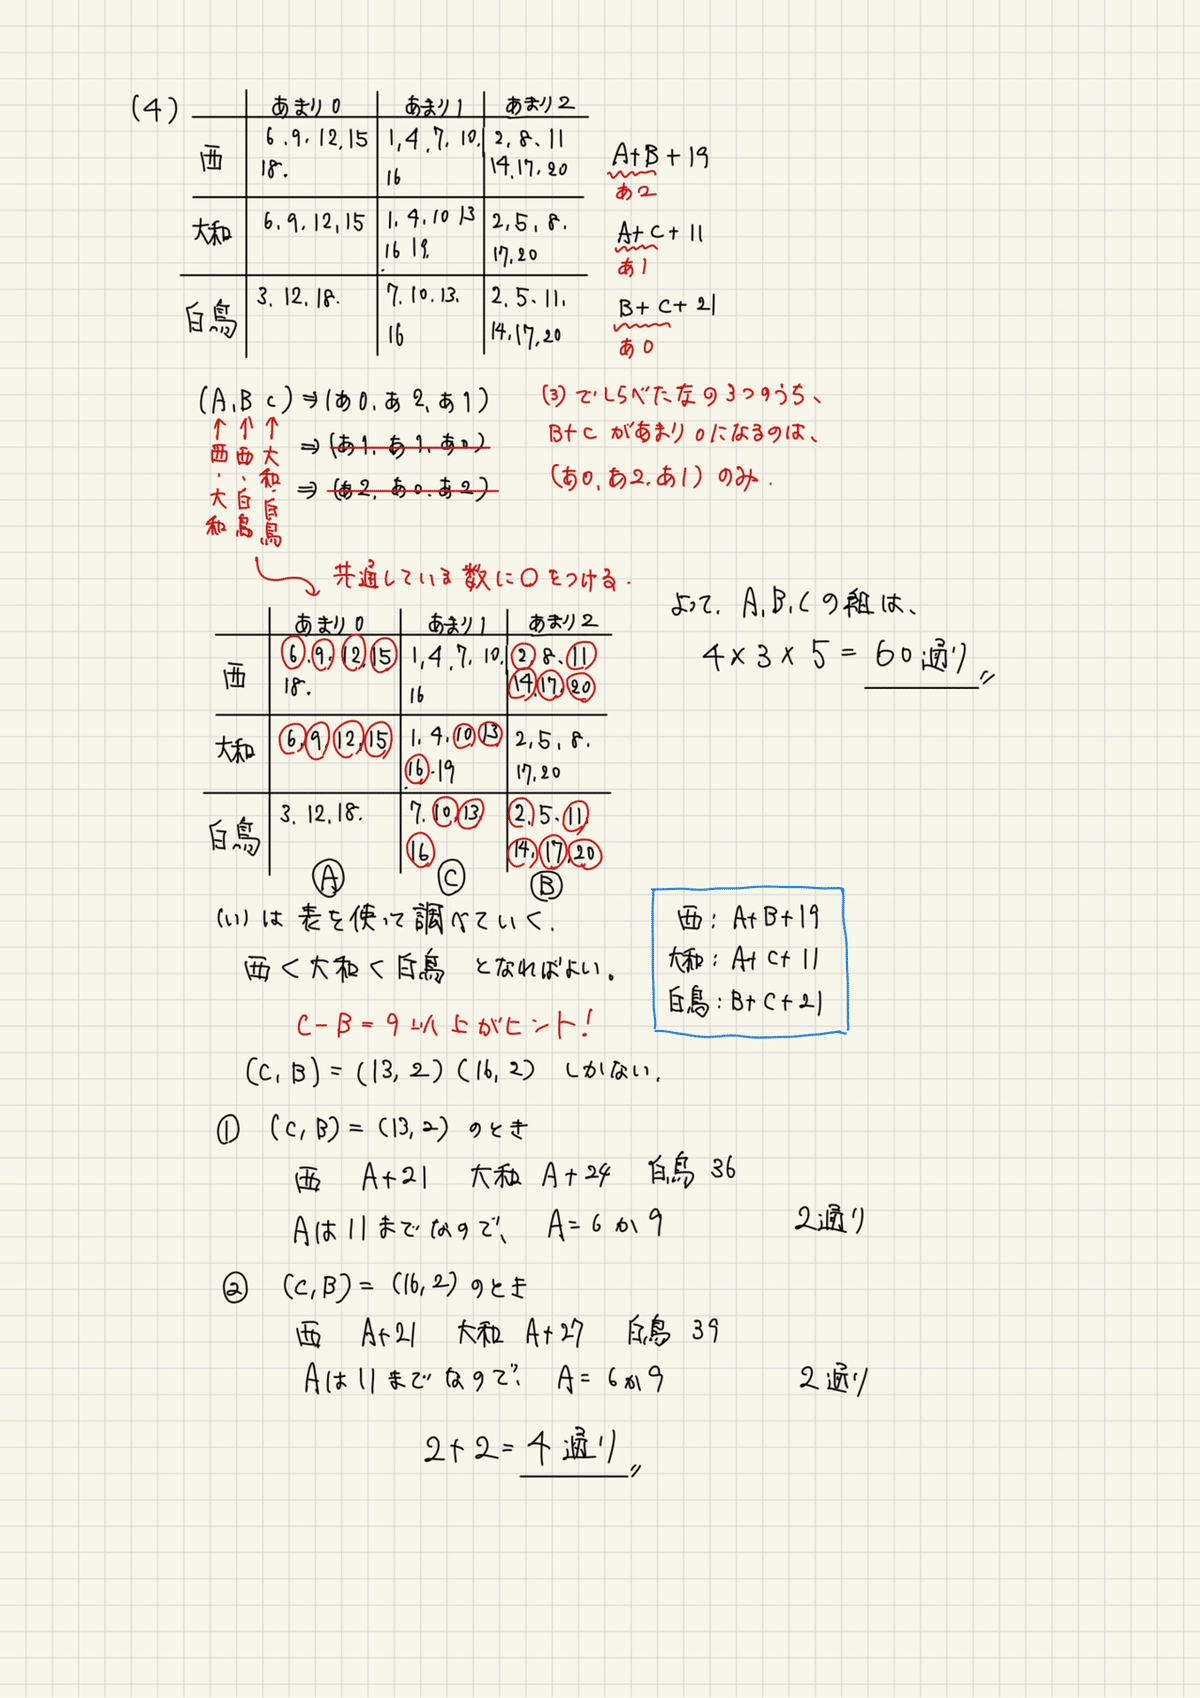 (4)
あまり0 あまり1 あまり2
西 6.9.12.15 18. 1,4.7.10. 16 2.8.11 14.17.20
大和 6.9.12.15 1.4.10 13 16 19. 2,5.8. 17.20
白鳥 3.12.18. 7.10.13. 16 2.5.11. 14.17.20
A+B+19
あ2
A+C+11
あ1
B+C+21
あ0
(A,B C)⇒(あ0,あ2,あ1)
⇒(あ1,あ1,あ0)
⇒(あ2,あ0,あ2)
↑西・大和
↑西・白鳥
↑大和・白鳥
(3)でしらべた左の3つのうち、
B+Cがあまり0になるのは、
(あ0,あ2.あ1)のみ.
共通している数に○をつける.
あまり0 あまり1 あまり2
西 6.9.12.15 18. 1,4.7.10. 16 2.8.11 14.17.20
大和 6.9.12.15 1.4.10.13 16.19 2,5.8. 17.20
白鳥 3.12.18. 7.10.13. 16 2.5.11 14.17.20
Ⓐ Ⓒ Ⓑ
よって、A,B,Cの組は、
4×3×5=60通り〃
(い)は表を使って調べていく.
西<大和<白鳥 となればよい。
C-B=9以上がヒント!
西:A+B+19
大和:A+C+11
白鳥:B+C+21
(C,B)=(13,2)(16,2) しかない.
① (C,B)=(13,2)のとき
西 A+21 大和 A+24 白鳥 36
Aは11までなので、A=6か9 2通り
② (C,B)=(16,2)のとき
西 A+21 大和 A+27 白鳥 39
Aは11までなので、A=6か9 2通り
2+2=4通り〃